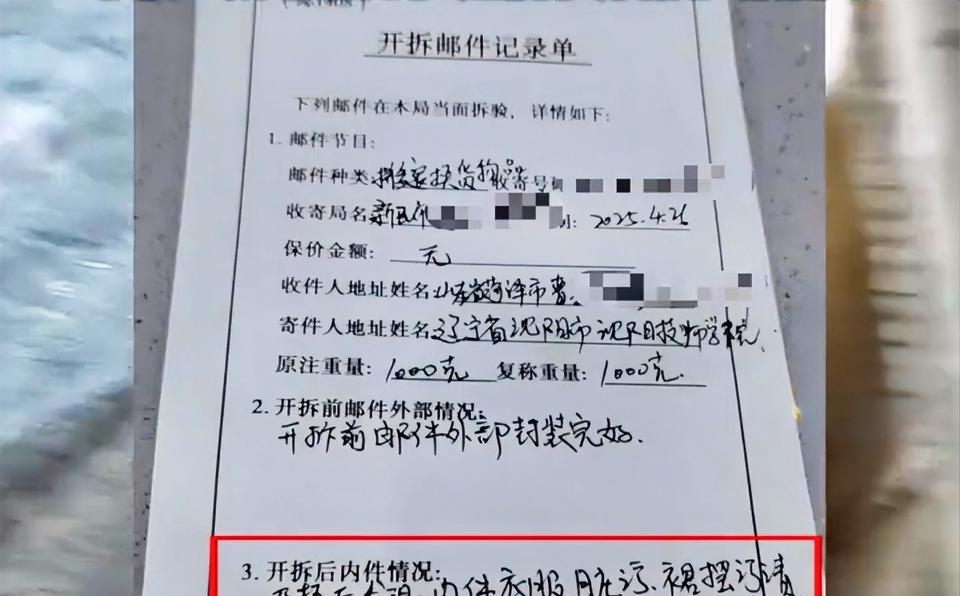 开拆邮件记录单
下列邮件在本局当面拆验，详情如下：
1. 邮件节目：
邮件种类 收寄号码
收寄局名 新民市 2025.4.26
保价金额： 元
收件人地址姓名 山东省菏泽市曹
寄件人地址姓名 辽宁省沈阳市沈阳技师学院
原注重量：1000克 复称重量：1000克.
2. 开拆前邮件外部情况：
开拆前邮件外部封装完好.
3. 开拆后内件情况：
内件衣服 污.裙摆污渍